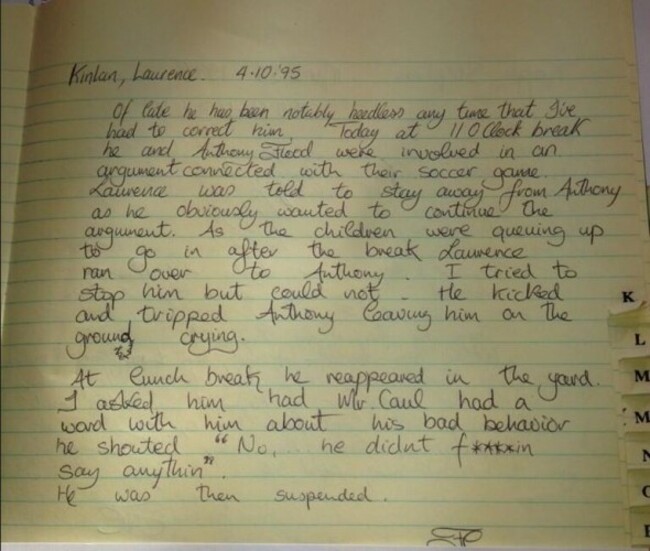 Kinlan, Laurence. 4.10.'95
Of late he has been notably heedless any time that I've
had to correct him. Today at 11 O Clock break
he and Anthony Flood were involved in an
argument connected with their soccer game.
Laurence was told to stay away from Anthony
as he obviously wanted to continue the
argument. As the children were queuing up
to go in after the break Laurence
ran over to Anthony. I tried to
stop him but could not. He kicked
and tripped Anthony leaving him on the
ground crying.
At lunch break he reappeared in the yard.
I asked him had Mr. Caul had a
word with him about his bad behavior
he shouted "No,... he didnt f****in
say anythin".
He was then suspended.
K
L
M
M
N